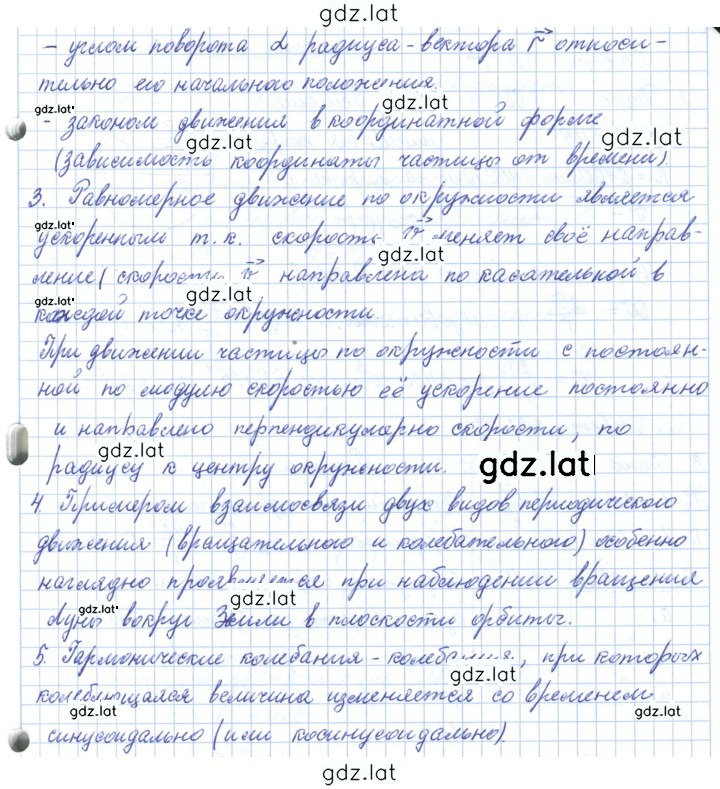 gdz.lat
- углом поворота α радиуса-вектора r⃗ относи-
тельно его начального положения.
gdz.lat
gdz.lat
- законом движения в координатной форме
gdz.lat
gdz.lat
(зависимость координаты частицы от времени)
3. Равномерное движение по окружности является
gdz.lat
ускоренным т.к. скорость v⃗ меняет своё направ-
gdz.lat
ление (скорость v⃗ направлена по касательной в
gdz.lat
gdz.lat
каждой точке окружности
При движении частицы по окружности с постоян-
ной по модулю скоростью её ускорение постоянно
и направлено перпендикулярно скорости, по
gdz.lat
gdz.lat
радиусу к центру окружности.
4. Примером взаимосвязи двух видов периодического
движения (вращательного и колебательного) особенно
gdz.lat
наглядно проявляется при наблюдении вращения
gdz.lat
gdz.lat
Луны вокруг Земли в плоскости орбиты.
5. Гармонические колебания - колебания, при которых
колеблющаяся величина изменяется со временем
gdz.lat
gdz.lat
gdz.lat
синусоидально (или косинусоидально).
gdz.lat